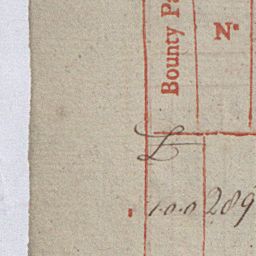 Bounty Pa
Nº
£
1.0.0 289